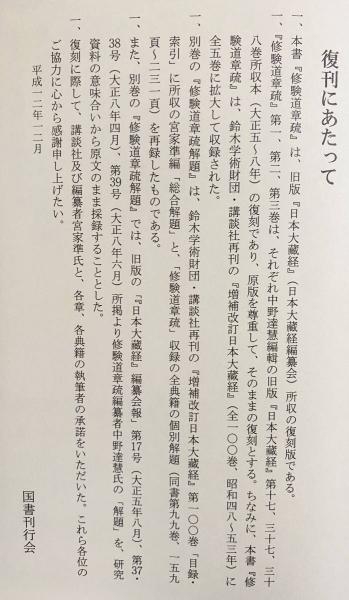 復刊にあたって
一、本書『修験道章疏』は、旧版『日本大藏経』（日本大蔵経編纂会）所収の復刻版である。
一、『修験道章疏』第一、第二、第三巻は、それぞれ中野達慧編輯の旧版『日本大藏経』第十七、三十七、三十
八巻所収本（大正五〜八年）の復刻であり、原版を尊重して、そのままの復刻とする。ちなみに、本書『修
験道章疏』は、鈴木学術財団・講談社再刊の『増補改訂日本大藏経』（全一〇〇巻、昭和四八〜五三年）に
全五巻に拡大して収録された。
一、別巻の『修験道章疏解題』は、鈴木学術財団・講談社再刊の『増補改訂日本大藏経』第一〇〇巻「目録・
索引」に所収の宮家準編「総合解題」と、「修験道章疏」収録の全典籍の個別解題（同書第九九巻、一五九
頁〜二三一頁）を再録したものである。
一、また、別巻の『修験道章疏解題』では、旧版の『『日本大藏経』編纂会会報』第17号（大正五年八月）、第37・
38号（大正八年四月）、第39号（大正八年六月）所掲より修験道章疏編纂者中野達慧氏の「解題」を、研究
資料の意味合いから原文のまま採録することとした。
一、復刻に際して、講談社及び編纂者宮家準氏と、各章、各典籍の執筆者の承諾をいただいた。これら各位の
ご協力に心から感謝申し上げたい。
平成一二年一二月
国書刊行会